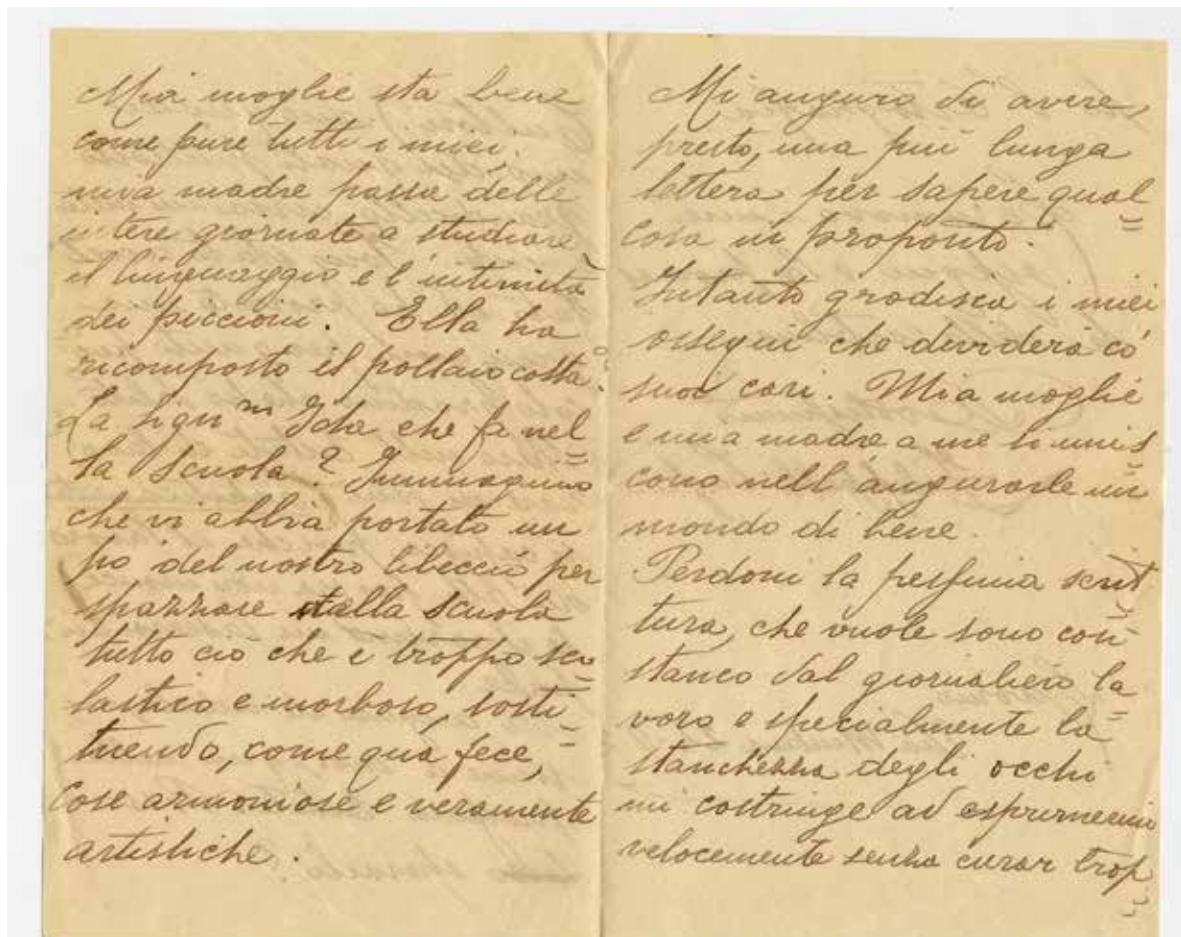 Mia moglie sta bene
come pure tutti i miei.
mia madre passa delle
intere giornate a studiare
il linguaggio e l'intimità
dei piccioni. Ella ha
ricomposto il pollaio costà.
La Ida che fa nel=
la Scuola? Immagino
che vi abbia portato un
po' del nostro libeccio per
spazzare dalla scuola
tutto ciò che è troppo sco=
lastico e morboso, sosti=
tuendo, come qua fece,
cose armoniose e veramente
artistiche.
Mi auguro di avere,
presto, una più lunga
lettera per sapere qual=
cosa in proposito.
Intanto gradisca i miei
ossequi che dividerà co'
suoi cari. Mia moglie
e mia madre a me si unis=
cono nell'augurarle un
mondo di bene.
Perdoni la pessima scrit=
tura, che vuole sono così
stanco dal giornaliero la=
voro e specialmente la
stanchezza degli occhi
mi costringe ad esprimermi
velocemente senza curar trop=